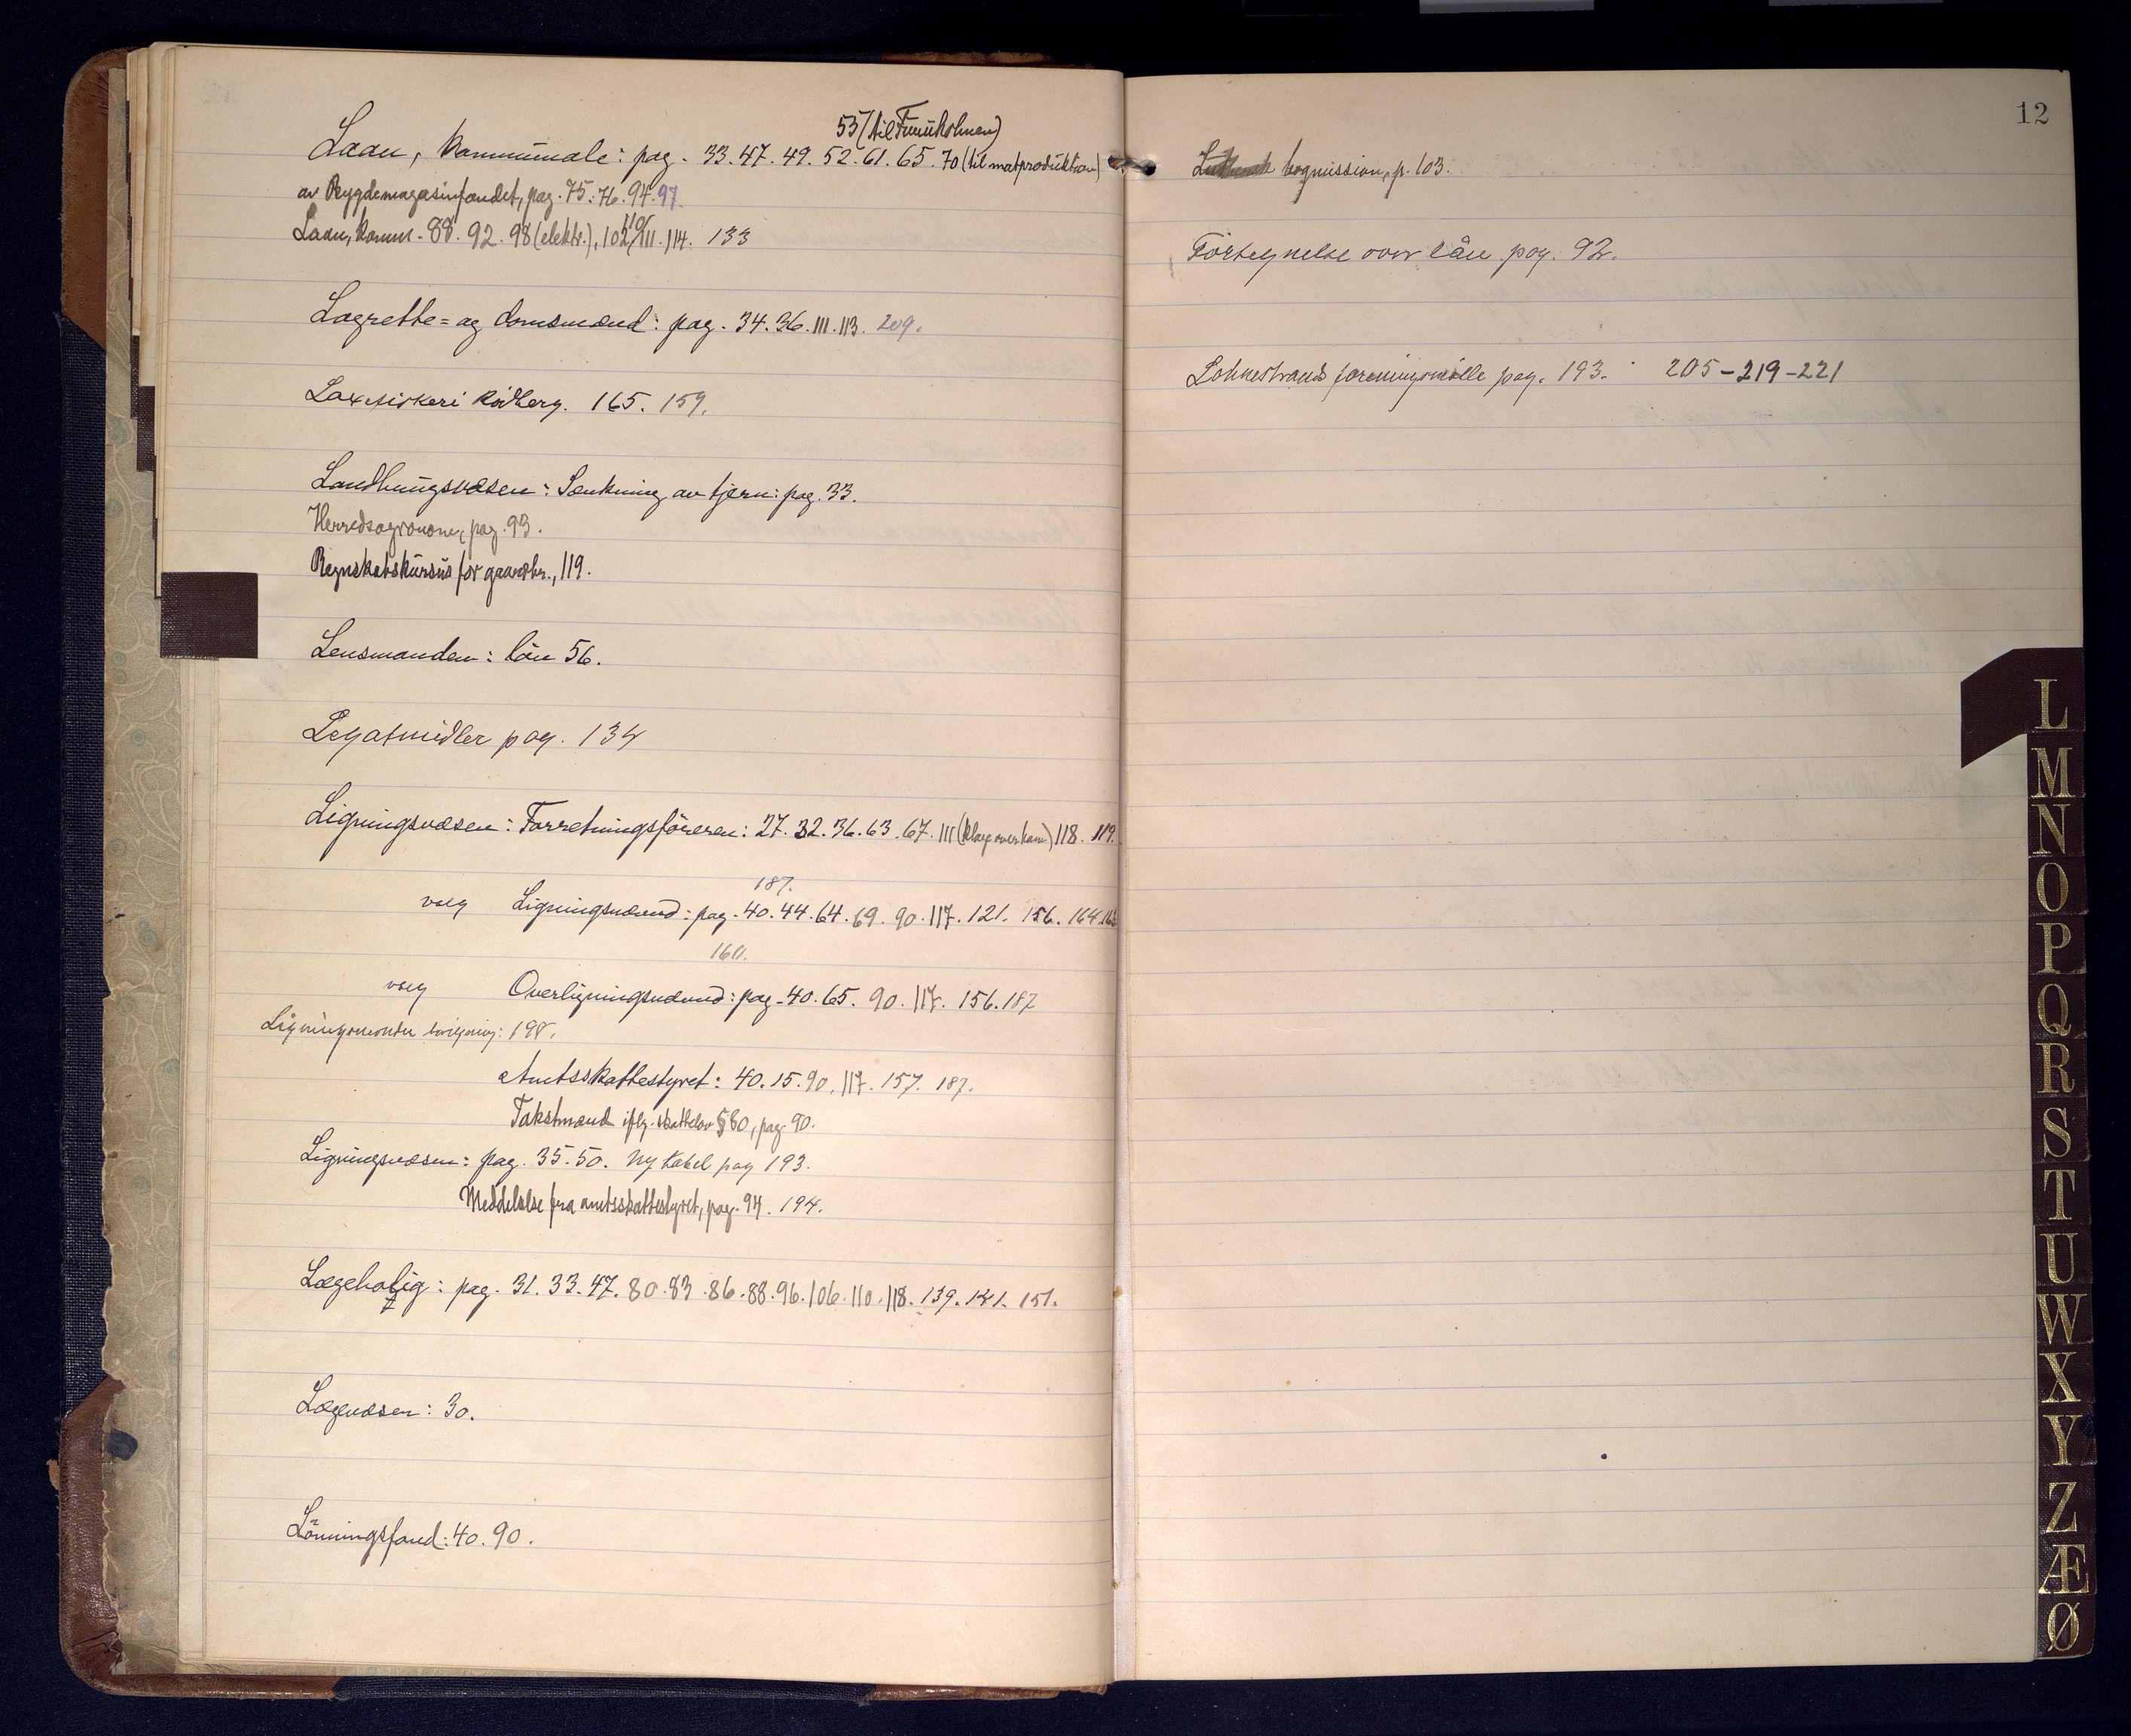 55 (til Furuholmen)
Laan, kommunale: pag. 33. 47. 49. 52. 61. 65. 70 (til matproduktion)
av Bygdemagasinfondet, pag. 75. 76. 94. 97
Laan, komm. 88. 92. 98 (elektr.), 102, 110/111. 114. 133
Lagrette= og domsmænd: pag. 34. 36. 111. 113. 209.
Laxefiskeri Rödberg. 165. 159.
Landbrugsvæsen: Sænkning av tjern: pag. 33.
Herredsagronom, pag. 93.
Regnskabskursus for gaardbr., 119.
Lensmanden: lön 56.
Legatmidler pag. 134
Ligningsvæsen: Forretningsföreren: 27. 32. 36. 63. 67. 111 (klage overkom) 118. 119.
187.
valg Ligningsnævnd: pag. 40. 44. 64. 69. 90. 117. 121. 156. 164.
160.
valg Overligningsnævnd: pag. 40. 65. 90. 117. 156. 187
198.
Amtsskattestyret: 40. 15. 90. 117. 157. 187.
Takstmænd iflg. skattelov § 60, pag. 90.
Ligningsvæsen: pag. 35. 50. Ny tabel pag 193.
Meddelelse fra amtsskattestyret, pag. 94. 194.
Lægebolig: pag. 31. 33. 47. 80. 83. 86. 88. 96. 106. 110. 118. 139. 141. 151.
Lægevæsen: 30.
Lönningsfond: 40. 90.
12
bogmission, p. 103.
Fortegnelse over lån pag. 92.
Lohnestrands foreningsmölle pag. 193. 205-219-221
L
M
N
O
P
Q
R
S
T
U
W
X
Y
Z
Æ
Ø